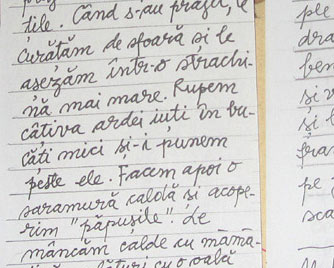 tile. Când s-au prăjit, le
curățăm de sfoară și le
așezăm într-o strachi-
nă mai mare. Rupem
câtiva ardei iuti în bu-
căți mici și-i punem
peste ele. Facem apoi o
saramură caldă și acope-
rim "păpușile". Le
mâncăm calde cu mămă-
cu o
ple
dra
ben
și v
și l
pe
sca